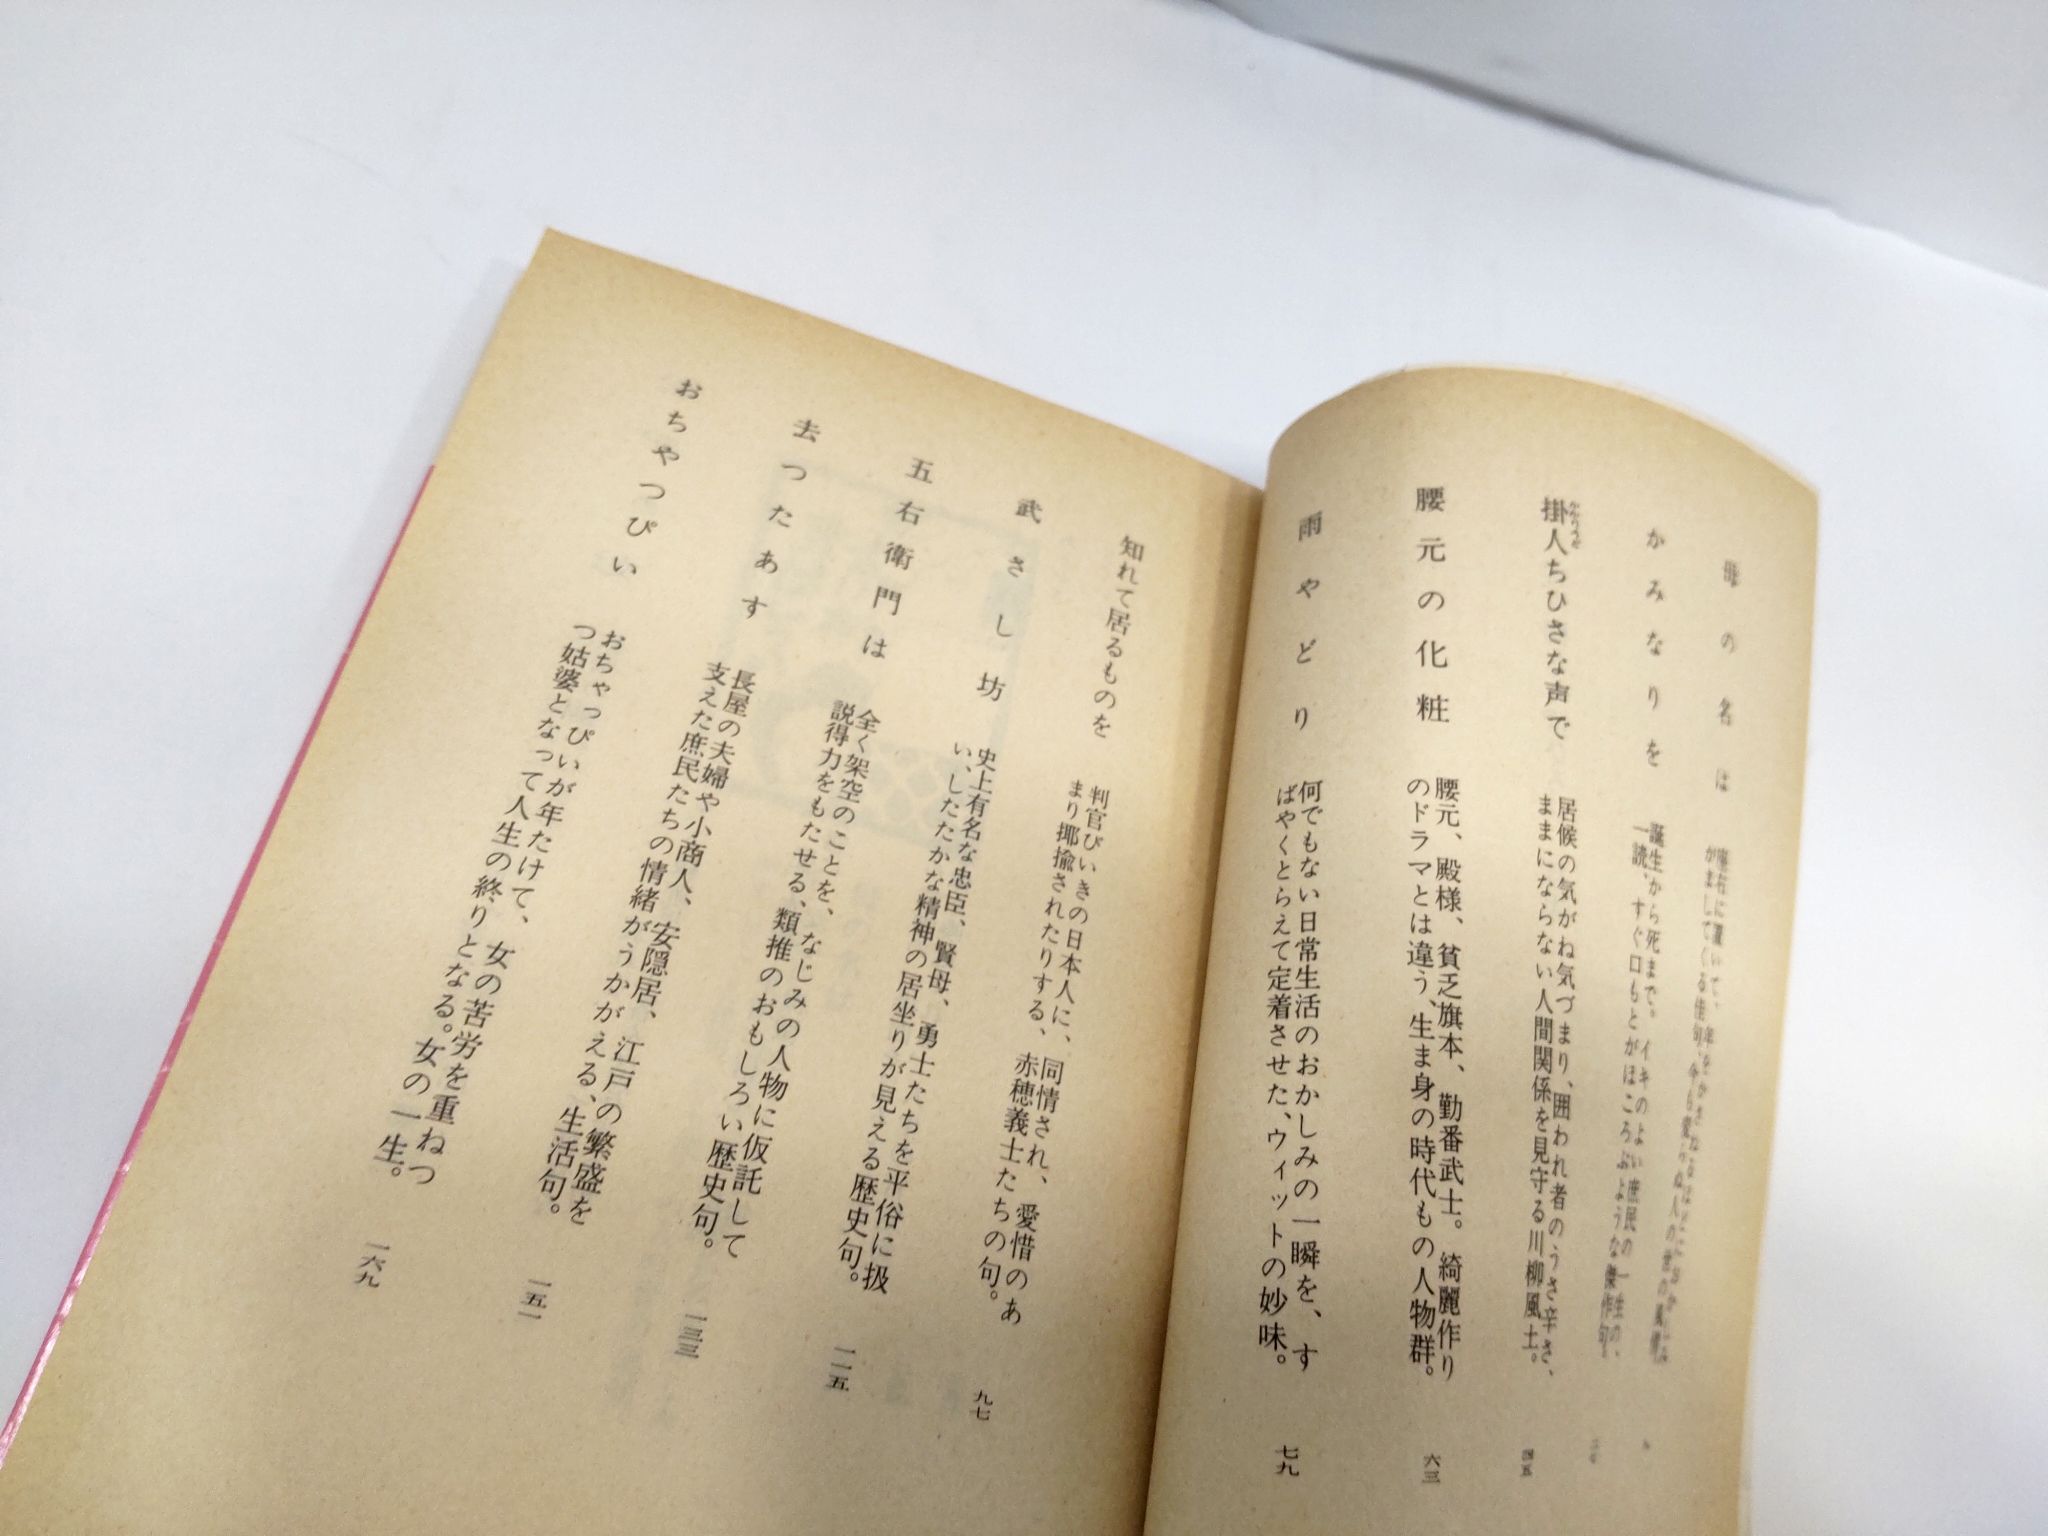 の名は
かみなりを
誕生から死まで。イキのよい庶民の一生の、
一読、すぐ口もとがほころぶような傑作句。
掛人ちひさな声で
居候の気がね気づまり、囲われ者のうさ辛さ、
ままにならない人間関係を見守る川柳風土。
四五
腰元の化粧
腰元、殿様、貧乏旗本、勤番武士。綺麗作り
のドラマとは違う、生ま身の時代もの人物群。
六三
雨やどり
何でもない日常生活のおかしみの一瞬を、す
ばやくとらえて定着させた、ウィットの妙味。
七九
知れて居るものを
判官びいきの日本人に、同情され、愛惜のあ
まり揶揄されたりする、赤穂義士たちの句。
九七
武さし坊
史上有名な忠臣、賢母、勇士たちを平俗に扱
い、したたかな精神の居坐りが見える歴史句。
一一五
五右衛門は
全く架空のことを、なじみの人物に仮託して
説得力をもたせる、類推のおもしろい歴史句。
一三三
去つたあす
長屋の夫婦や小商人、安隠居、江戸の繁盛を
支えた庶民たちの情緒がうかがえる、生活句。
一五一
おちやつぴい
おちゃっぴいが年たけて、女の苦労を重ねつ
つ姑婆となって人生の終りとなる。女の一生。
一六九